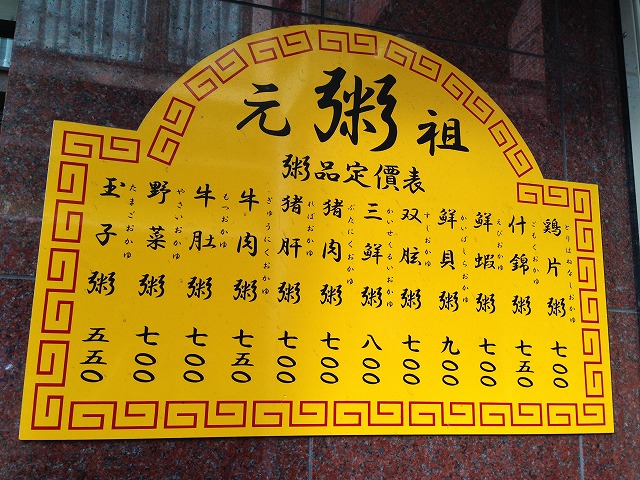 元粥祖
粥品定價表
鶏片粥 とりはねなしおかゆ 七〇〇
什錦粥 ごもくおかゆ 七五〇
鮮蝦粥 えびおかゆ 七〇〇
鮮貝粥 かいばしらおかゆ 九〇〇
双胘粥 すじおかゆ 七〇〇
三鮮粥 かいせんるいおかゆ 八〇〇
猪肉粥 ぶたにくおかゆ 七〇〇
猪肝粥 ればおかゆ 七〇〇
牛肉粥 ぎゅうにくおかゆ 七五〇
牛肚粥 もつおかゆ 七〇〇
野菜粥 やさいおかゆ 七〇〇
玉子粥 たまごおかゆ 五五〇